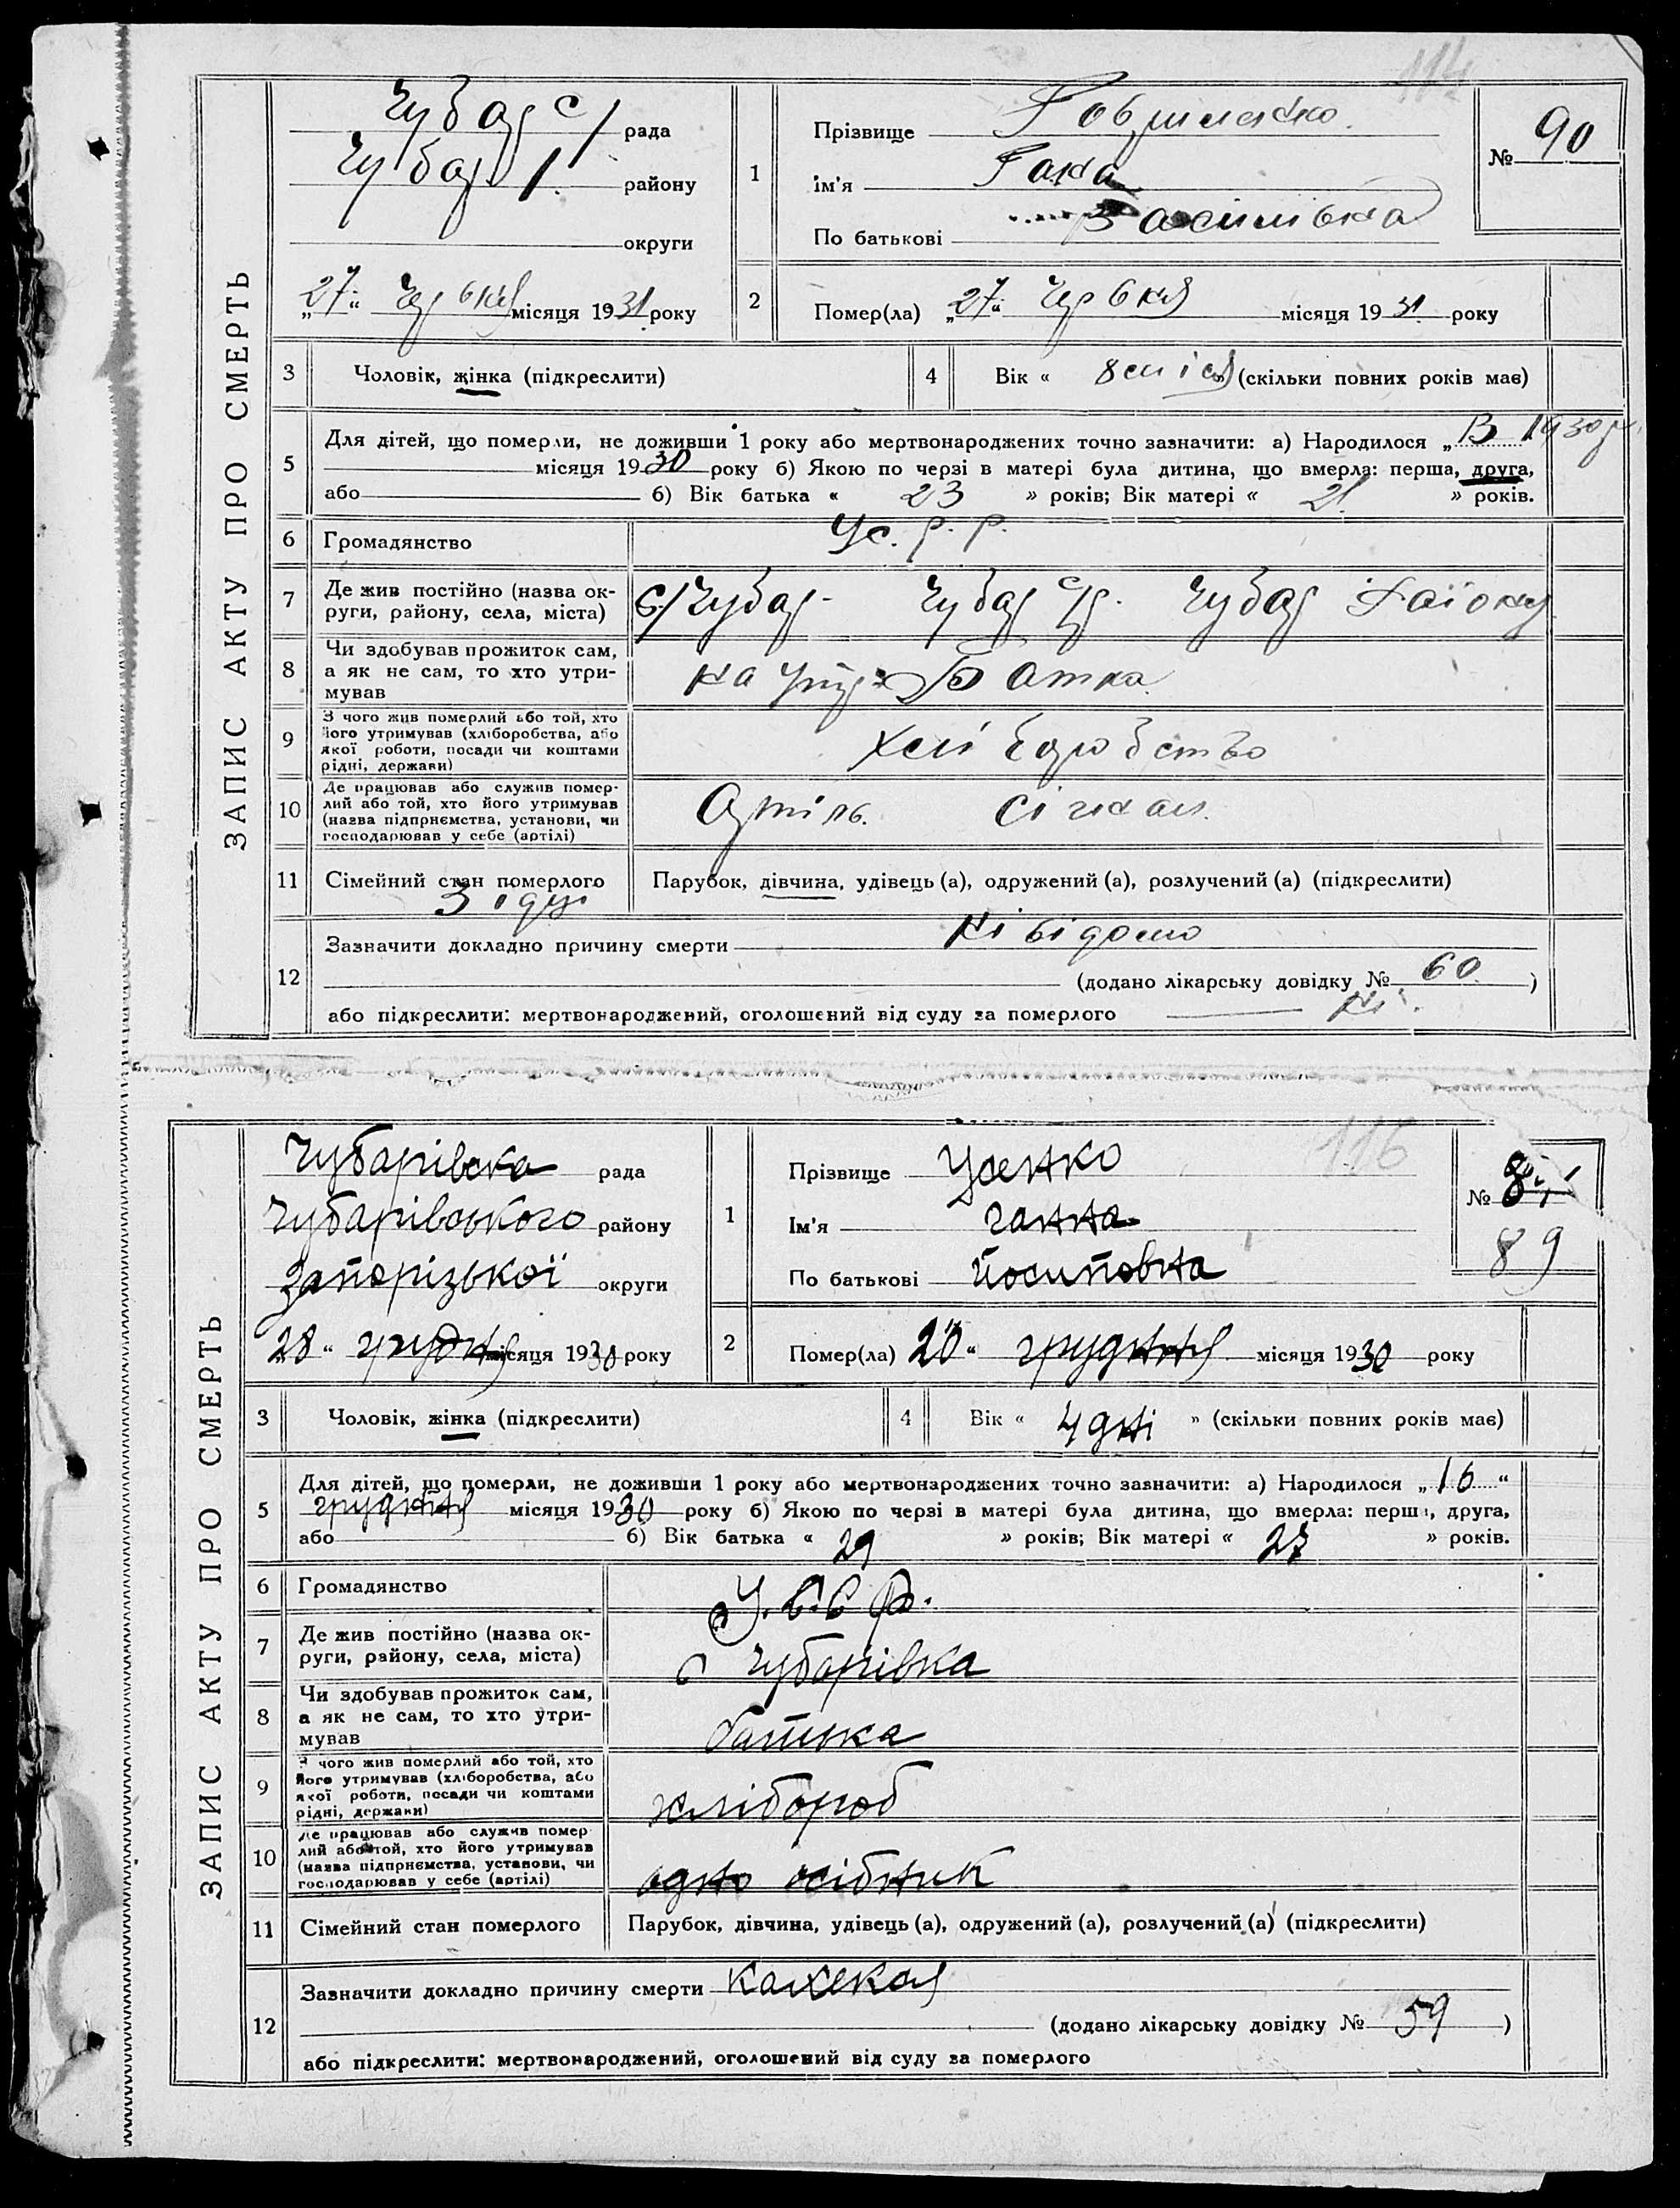 114
ЗАПИС АКТУ ПРО СМЕРТЬ
Чубар с/ рада
Чубар / району
округи
1
Прізвище
Ім'я Гана
По батькові Василівна
№ 90
„27“ Червня місяця 1931 року
2
Помер(ла) „27“ Червня місяця 1931 року
3
Чоловік, жінка (підкреслити)
4
Вік « 8 міся (скільки повних років має)
5
Для дітей, що померли, не доживши 1 року або мертвонароджених точно зазначити: а) Народилося „ В 1930 р.
місяця 1930 року б) Якою по черзі в матері була дитина, що вмерла: перша, друга,
або б) Вік батька « 23 » років; Вік матері « 21 » років.
6
Громадянство Ус. р. р.
7
Де жив постійно (назва округи, району, села, міста) с/Чубар- Чубар с/р. Чубар Району
8
Чи здобував прожиток сам, а як не сам, то хто утримував на утр. Батка
9
З чого жив померлий або той, хто його утримував (хліборобства, або якої роботи, посади чи коштами рідні, держави) хліборобство
10
Де працював або служив померлий або той, хто його утримував (назва підприємства, установи, чи господарював у себе (артілі) Артіль.
11
Сімейний стан померлого
Парубок, дівчина, удівець (а), одружений (а), розлучений (а) (підкреслити)
12
Зазначити докладно причину смерти Ні відомо
(додано лікарську довідку № 60 )
або підкреслити: мертвонароджений, оголошений від суду за померлого Ні.
116
ЗАПИС АКТУ ПРО СМЕРТЬ
Чубарівска рада
Чубарівського району
Запорізької округи
1
Прізвище Усенко
Ім'я ганна
По батькові Йосиповна
№
89
„28“ грудня місяця 1930 року
2
Помер(ла) 20“ грудння місяця 1930 року
3
Чоловік, жінка (підкреслити)
4
Вік « 4 дні » (скільки повних років має)
5
Для дітей, що померли, не доживши 1 року або мертвонароджених точно зазначити: а) Народилося „16“
грудння місяця 1930 року б) Якою по черзі в матері була дитина, що вмерла: перша, друга,
або б) Вік батька « 29 » років; Вік матері « 27 » років.
6
Громадянство У.С.С.Р.
7
Де жив постійно (назва округи, району, села, міста) с Чубарівка
8
Чи здобував прожиток сам, а як не сам, то хто утримував батька
9
З чого жив померлий або той, хто його утримував (хліборобства, або якої роботи, посади чи коштами рідні, держави) хлібороб
10
Де працював або служив померлий або той, хто його утримував (назва підприємства, установи, чи господарював у себе (артілі) одно осібник
11
Сімейний стан померлого
Парубок, дівчина, удівець (а), одружений (а), розлучений (а) (підкреслити)
12
Зазначити докладно причину смерти
(додано лікарську довідку № 59 )
або підкреслити: мертвонароджений, оголошений від суду за померлого